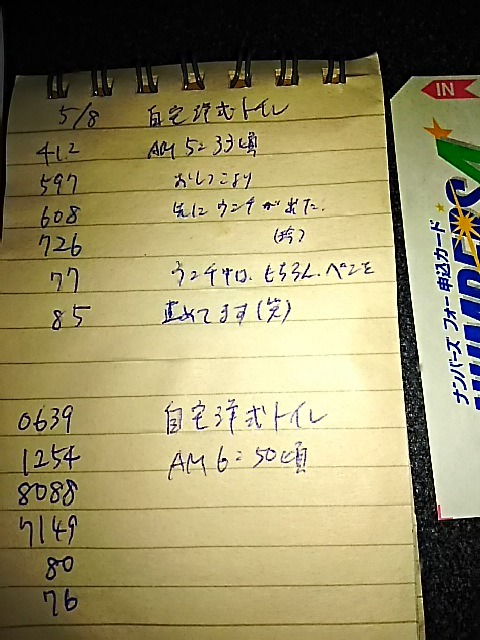 5/8 自宅洋式トイレ
412 AM 5:33頃
597 おしっこより
608 先にウンチが出た.
726 (笑)
77 ウンチ中は、もちろん、ペンを
85 止めてます(笑)
0639 自宅洋式トイレ
1254 AM 6:50頃
8088
7149
80
76
IN
ナンバーズ フォー 申込カード
NUMBERS4